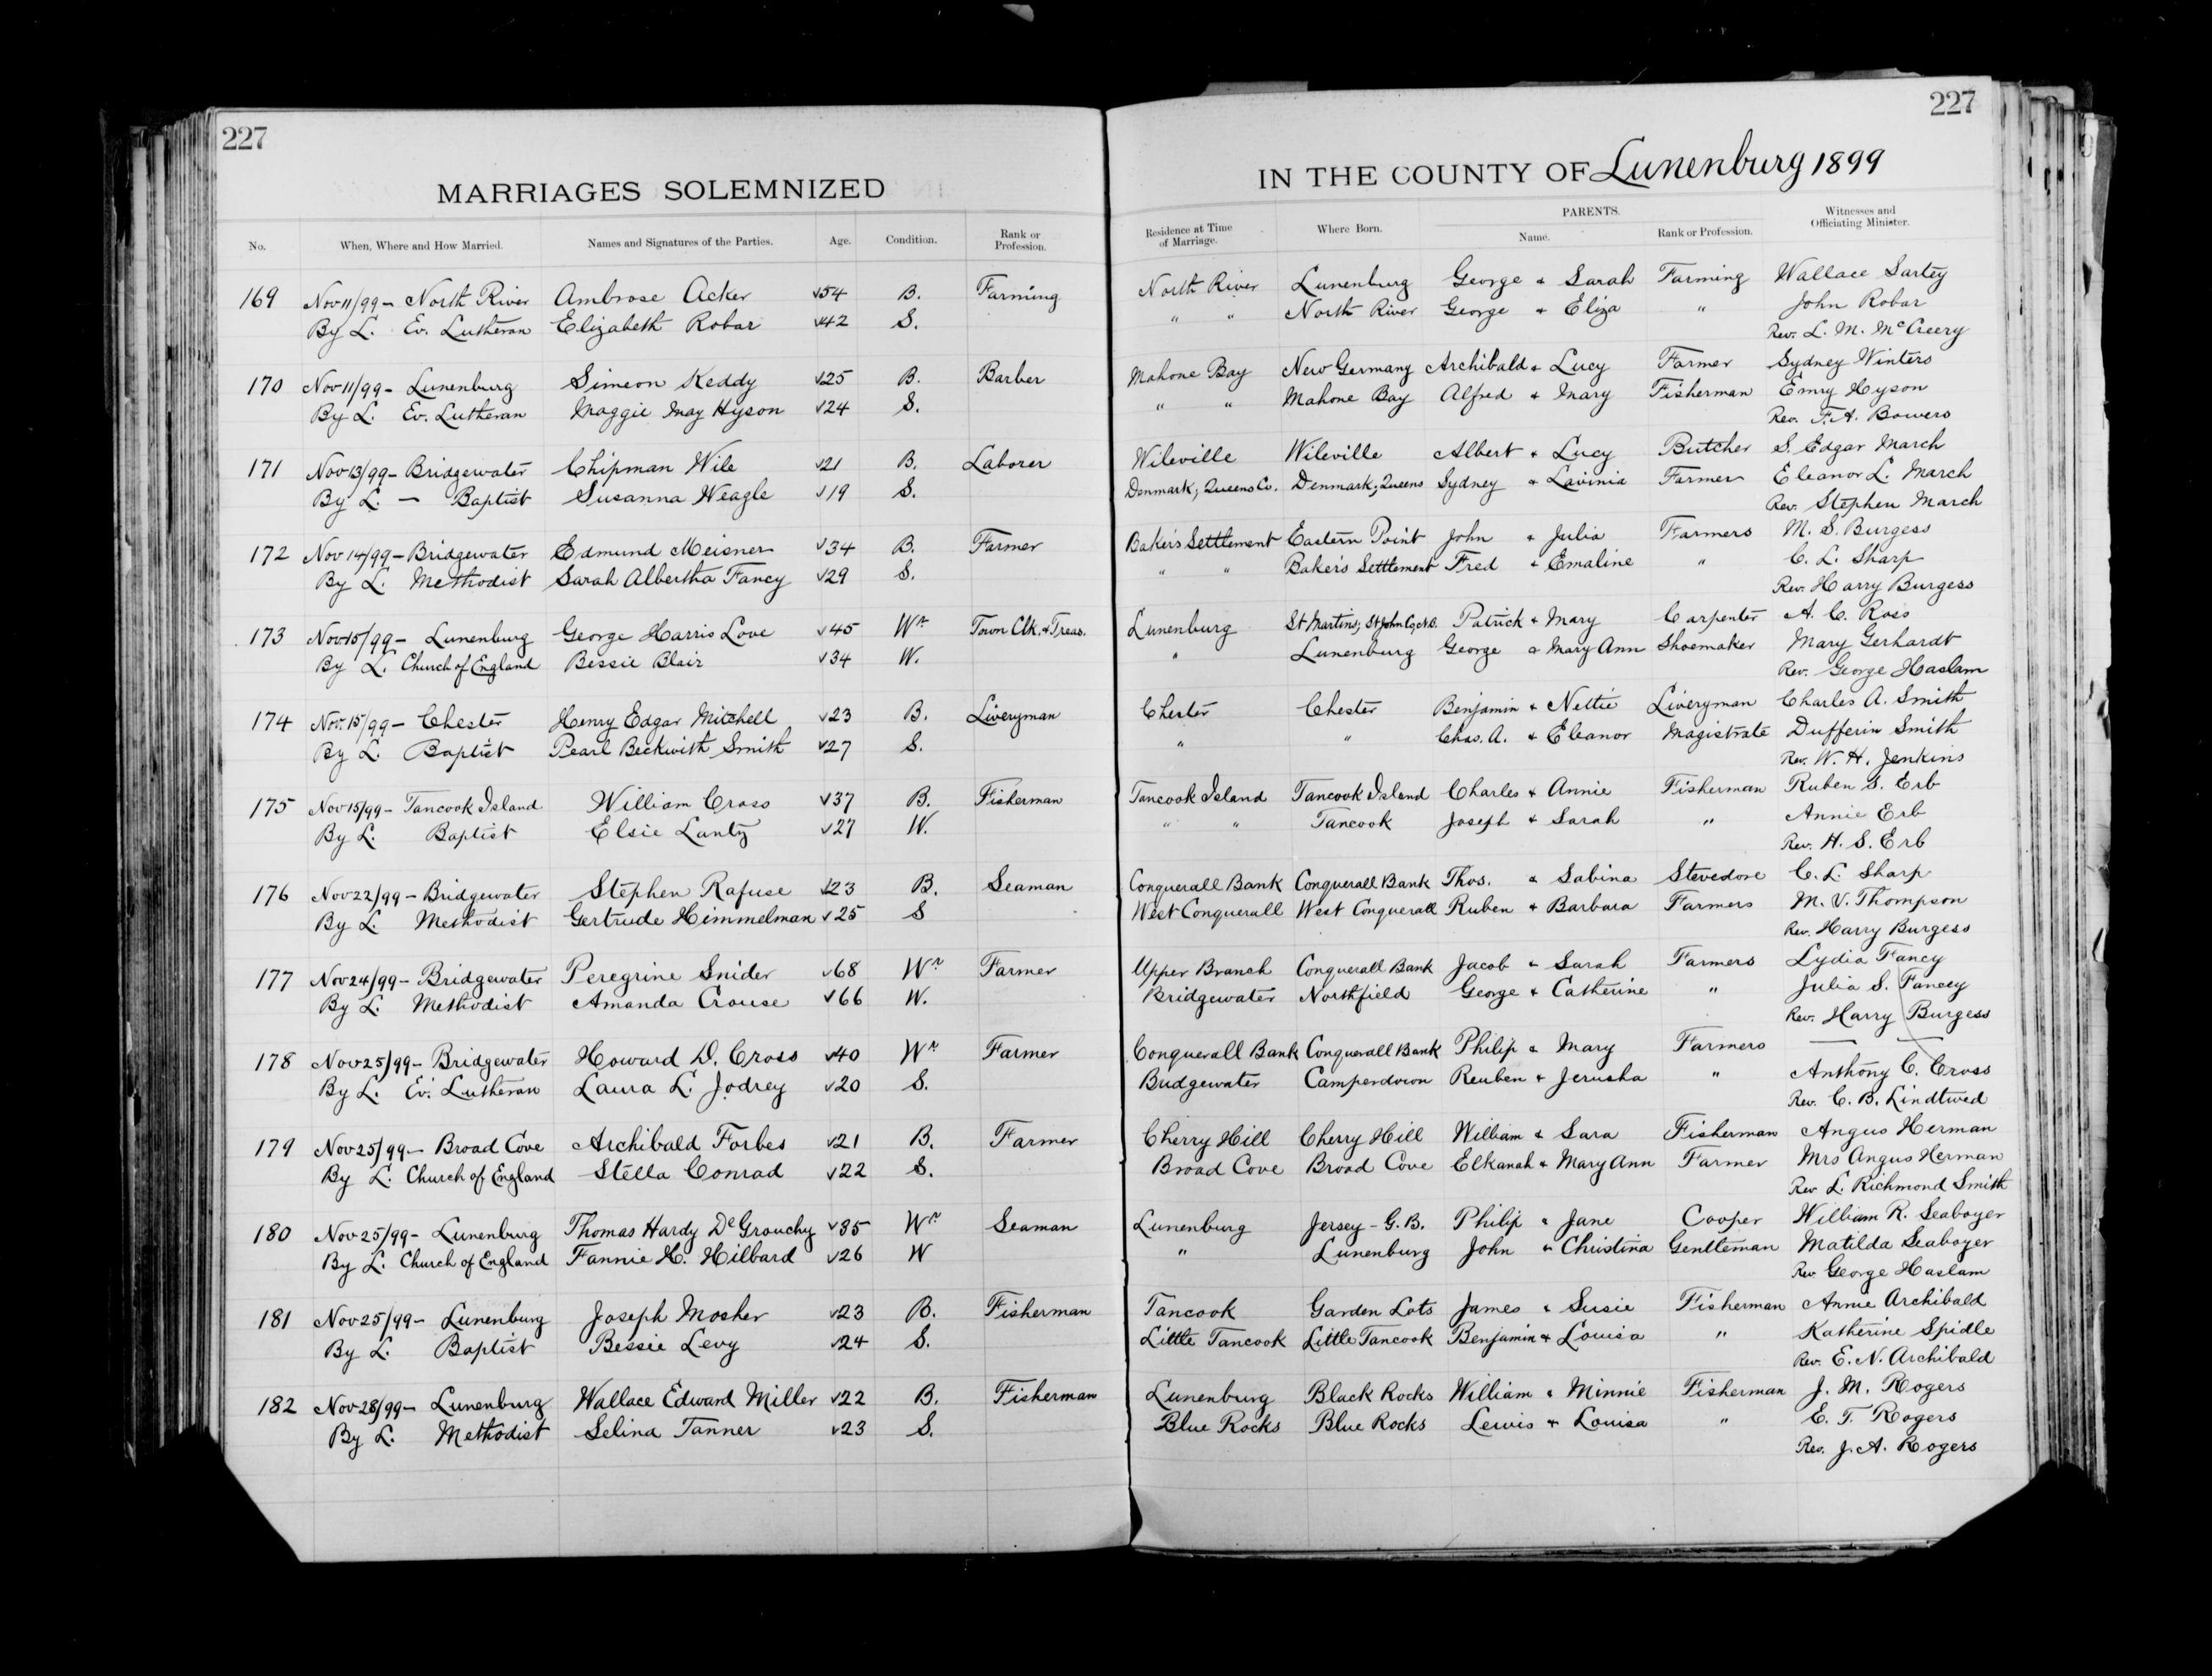 227
227
MARRIAGES SOLEMNIZED
IN THE COUNTY OF Lunenburg 1899
No. When, Where and How Married. Names and Signatures of the Parties. Age. Condition. Rank or Profession. Residence at Time of Marriage. Where Born. PARENTS. Name. Rank or Profession. Witnesses and Officiating Minister.
169 Nov 11/99 - North River Ambrose Acker 54 B. Farming North River Lunenburg George & Sarah Farming Wallace Sartey
By L. Ev. Lutheran Elizabeth Robar 42 S. " " North River George & Eliza " John Robar
Rev. L. M. McCreery
170 Nov 11/99 - Lunenburg Simeon Keddy 25 B. Barber Mahone Bay New Germany Archibald & Lucy Farmer Sydney Winters
By L. Ev. Lutheran Maggie May Hyson 24 S. " " Mahone Bay Alfred & Mary Fisherman Emry Hyson
Rev. F. A. Bowers
171 Nov 13/99 - Bridgewater Chipman Wile 21 B. Laborer Wileville Wileville Albert & Lucy Butcher S. Edgar March
By L. — Baptist Susanna Weagle 19 S. Denmark; Queens Co. Denmark; Queens Sydney & Lavinia Farmer Eleanor L. March
Rev. Stephen March
172 Nov 14/99 - Bridgewater Edmund Meisner 34 B. Farmer Bakers Settlement Eastern Point John & Julia Farmers M. S. Burgess
By L. Methodist Sarah Albertha Fancy 29 S. " " Bakers Settlement Fred & Emaline " C. L. Sharp
Rev. Harry Burgess
173 Nov 15/99 - Lunenburg George Harris Love 45 Wr Town Clk. & Treas. Lunenburg St Martins; St John Co, N.B. Patrick & Mary Carpenter A. C. Ross
By L. Church of England Bessie Blair 34 W. " Lunenburg George & Mary Ann Shoemaker Mary Gerhardt
Rev. George Haslam
174 Nov. 15/99 - Chester Henry Edgar Mitchell 23 B. Liveryman Chester Chester Benjamin & Nettie Liveryman Charles A. Smith
By L. Baptist Pearl Beckwith Smith 27 S. " " Chas. A. & Eleanor Magistrate Dufferin Smith
Rev. W. H. Jenkins
175 Nov 15/99 - Tancook Island William Cross 37 B. Fisherman Tancook Island Tancook Island Charles & Annie Fisherman Ruben S. Erb
By L. Baptist Elsie Lantz 27 W. " " Tancook Joseph & Sarah " Annie Erb
Rev. H. S. Erb
176 Nov 22/99 - Bridgewater Stephen Rafuse 23 B. Seaman Conquerall Bank Conquerall Bank Thos. & Sabina Stevedore C. L. Sharp
By L. Methodist Gertrude Himmelman 25 S West Conquerall West Conquerall Ruben & Barbara Farmers M. V. Thompson
Rev. Harry Burgess
177 Nov 24/99 - Bridgewater Peregrine Snider 68 Wr Farmer Upper Branch Conquerall Bank Jacob & Sarah Farmers Lydia Fancy
By L. Methodist Amanda Crouse 66 W. Bridgewater Northfield George & Catherine " Julia S. Fancey
Rev. Harry Burgess
178 Nov 25/99 - Bridgewater Howard D. Cross 40 Wr Farmer Conquerall Bank Conquerall Bank Philip & Mary Farmers — —
By L. Ev. Lutheran Laura L. Jodrey 20 S. Bridgewater Camperdown Reuben & Jerusha " Anthony C. Cross
Rev. C. B. Lindtwed
179 Nov 25/99 - Broad Cove Archibald Forbes 21 B. Farmer Cherry Hill Cherry Hill William & Sara Fisherman Angus Herman
By L. Church of England Stella Conrad 22 S. Broad Cove Broad Cove Elkanah & Mary Ann Farmer Mrs Angus Herman
Rev L. Richmond Smith
180 Nov 25/99 - Lunenburg Thomas Hardy DeGrouchy 35 Wr Seaman Lunenburg Jersey - G.B. Philip & Jane Cooper William R. Seaboyer
By L. Church of England Fannie H. Hilbard 26 W " Lunenburg John & Christina Gentleman Matilda Seaboyer
Rev George Haslam
181 Nov 25/99 - Lunenburg Joseph Mosher 23 B. Fisherman Tancook Garden Lots James & Susie Fisherman Annie Archibald
By L. Baptist Bessie Levy 24 S. Little Tancook Little Tancook Benjamin & Louisa " Katherine Spidle
Rev. E. N. Archibald
182 Nov 28/99 - Lunenburg Wallace Edward Miller 22 B. Fisherman Lunenburg Black Rocks William & Minnie Fisherman J. M. Rogers
By L. Methodist Selina Tanner 23 S. Blue Rocks Blue Rocks Lewis & Louisa " E. T. Rogers
Rev. J. A. Rogers